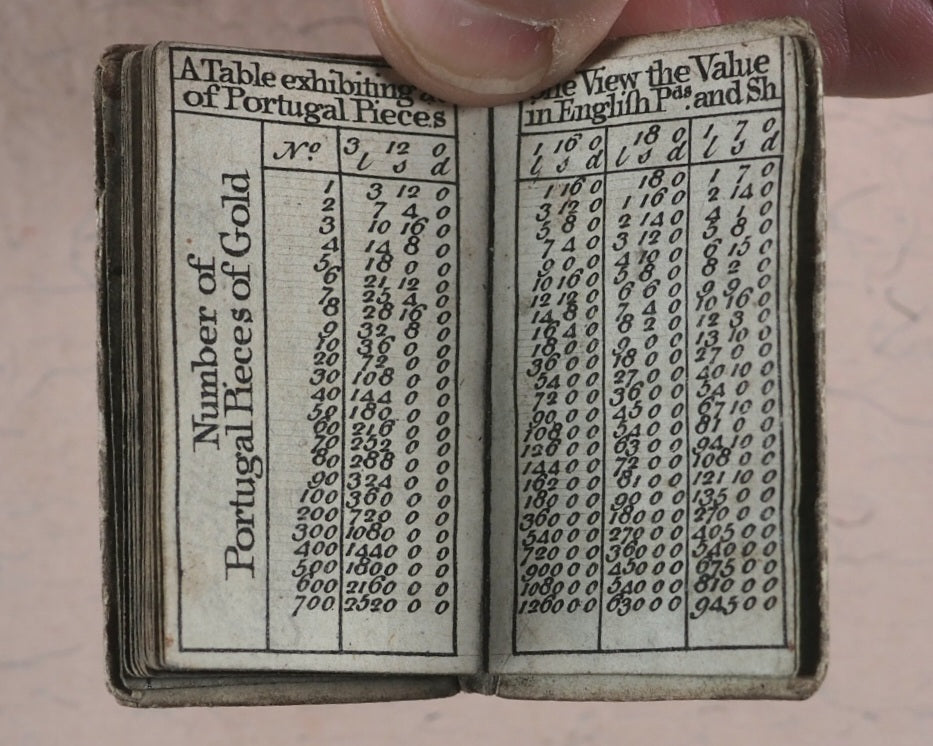 A Table exhibiting
of Portugal Pieces
Number of
Portugal Pieces of Gold
No. 3 12 0
l s d
1 3 12 0
2 7 4 0
3 10 16 0
4 14 8 0
5 18 0 0
6 21 12 0
7 25 4 0
8 28 16 0
9 32 8 0
10 36 0 0
20 72 0 0
30 108 0 0
40 144 0 0
50 180 0 0
60 216 0 0
70 252 0 0
80 288 0 0
90 324 0 0
100 360 0 0
200 720 0 0
300 1080 0 0
400 1440 0 0
500 1800 0 0
600 2160 0 0
700 2520 0 0
View the Value
in Engliſh Pds. and Sh
1 16 0 18 0 1 7 0
l s d l s d l s d
1 16 0 18 0 1 7 0
3 12 0 1 16 0 2 14 0
5 8 0 2 14 0 4 1 0
7 4 0 3 12 0 5 8 0
9 0 0 4 10 0 6 15 0
10 16 0 5 8 0 8 2 0
12 12 0 6 6 0 9 9 0
14 8 0 7 4 0 10 16 0
16 4 0 8 2 0 12 3 0
18 0 0 9 0 0 13 10 0
36 0 0 18 0 0 27 0 0
54 0 0 27 0 0 40 10 0
72 0 0 36 0 0 54 0 0
90 0 0 45 0 0 67 10 0
108 0 0 54 0 0 81 0 0
126 0 0 63 0 0 94 10 0
144 0 0 72 0 0 108 0 0
162 0 0 81 0 0 121 10 0
180 0 0 90 0 0 135 0 0
360 0 0 180 0 0 270 0 0
540 0 0 270 0 0 405 0 0
720 0 0 360 0 0 540 0 0
900 0 0 450 0 0 675 0 0
1080 0 0 540 0 0 810 0 0
1260 0 0 630 0 0 945 0 0